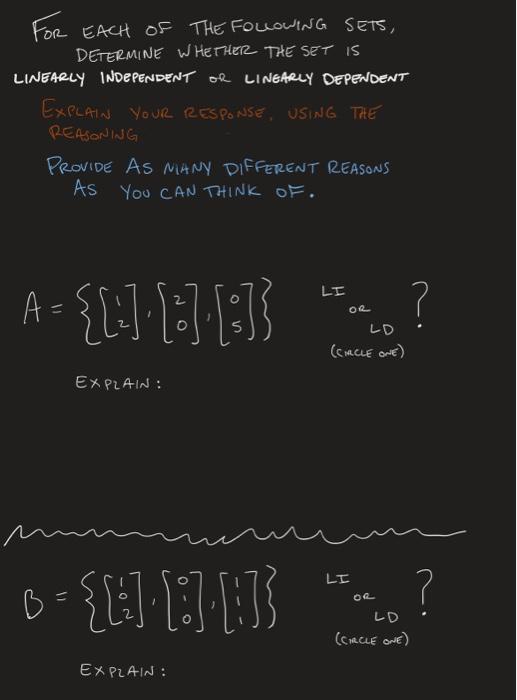 FOR EACH OF THE FOLLOWING SETS,
DETERMINE WHETHER THE SET IS
LINEARLY INDEPENDENT OR LINEARLY DEPENDENT
EXPLAIN YOUR RESPONSE, USING THE
REASONING
PROVIDE AS MANY DIFFERENT REASONS
AS YOU CAN THINK OF.
A = {[1 2], [2 0], [0 5]} LI OR LD ?
(CIRCLE ONE)
EXPLAIN:
B = {[1 0 2], [0 1 0], [1 1 1]} LI OR LD ?
(CIRCLE ONE)
EXPLAIN: